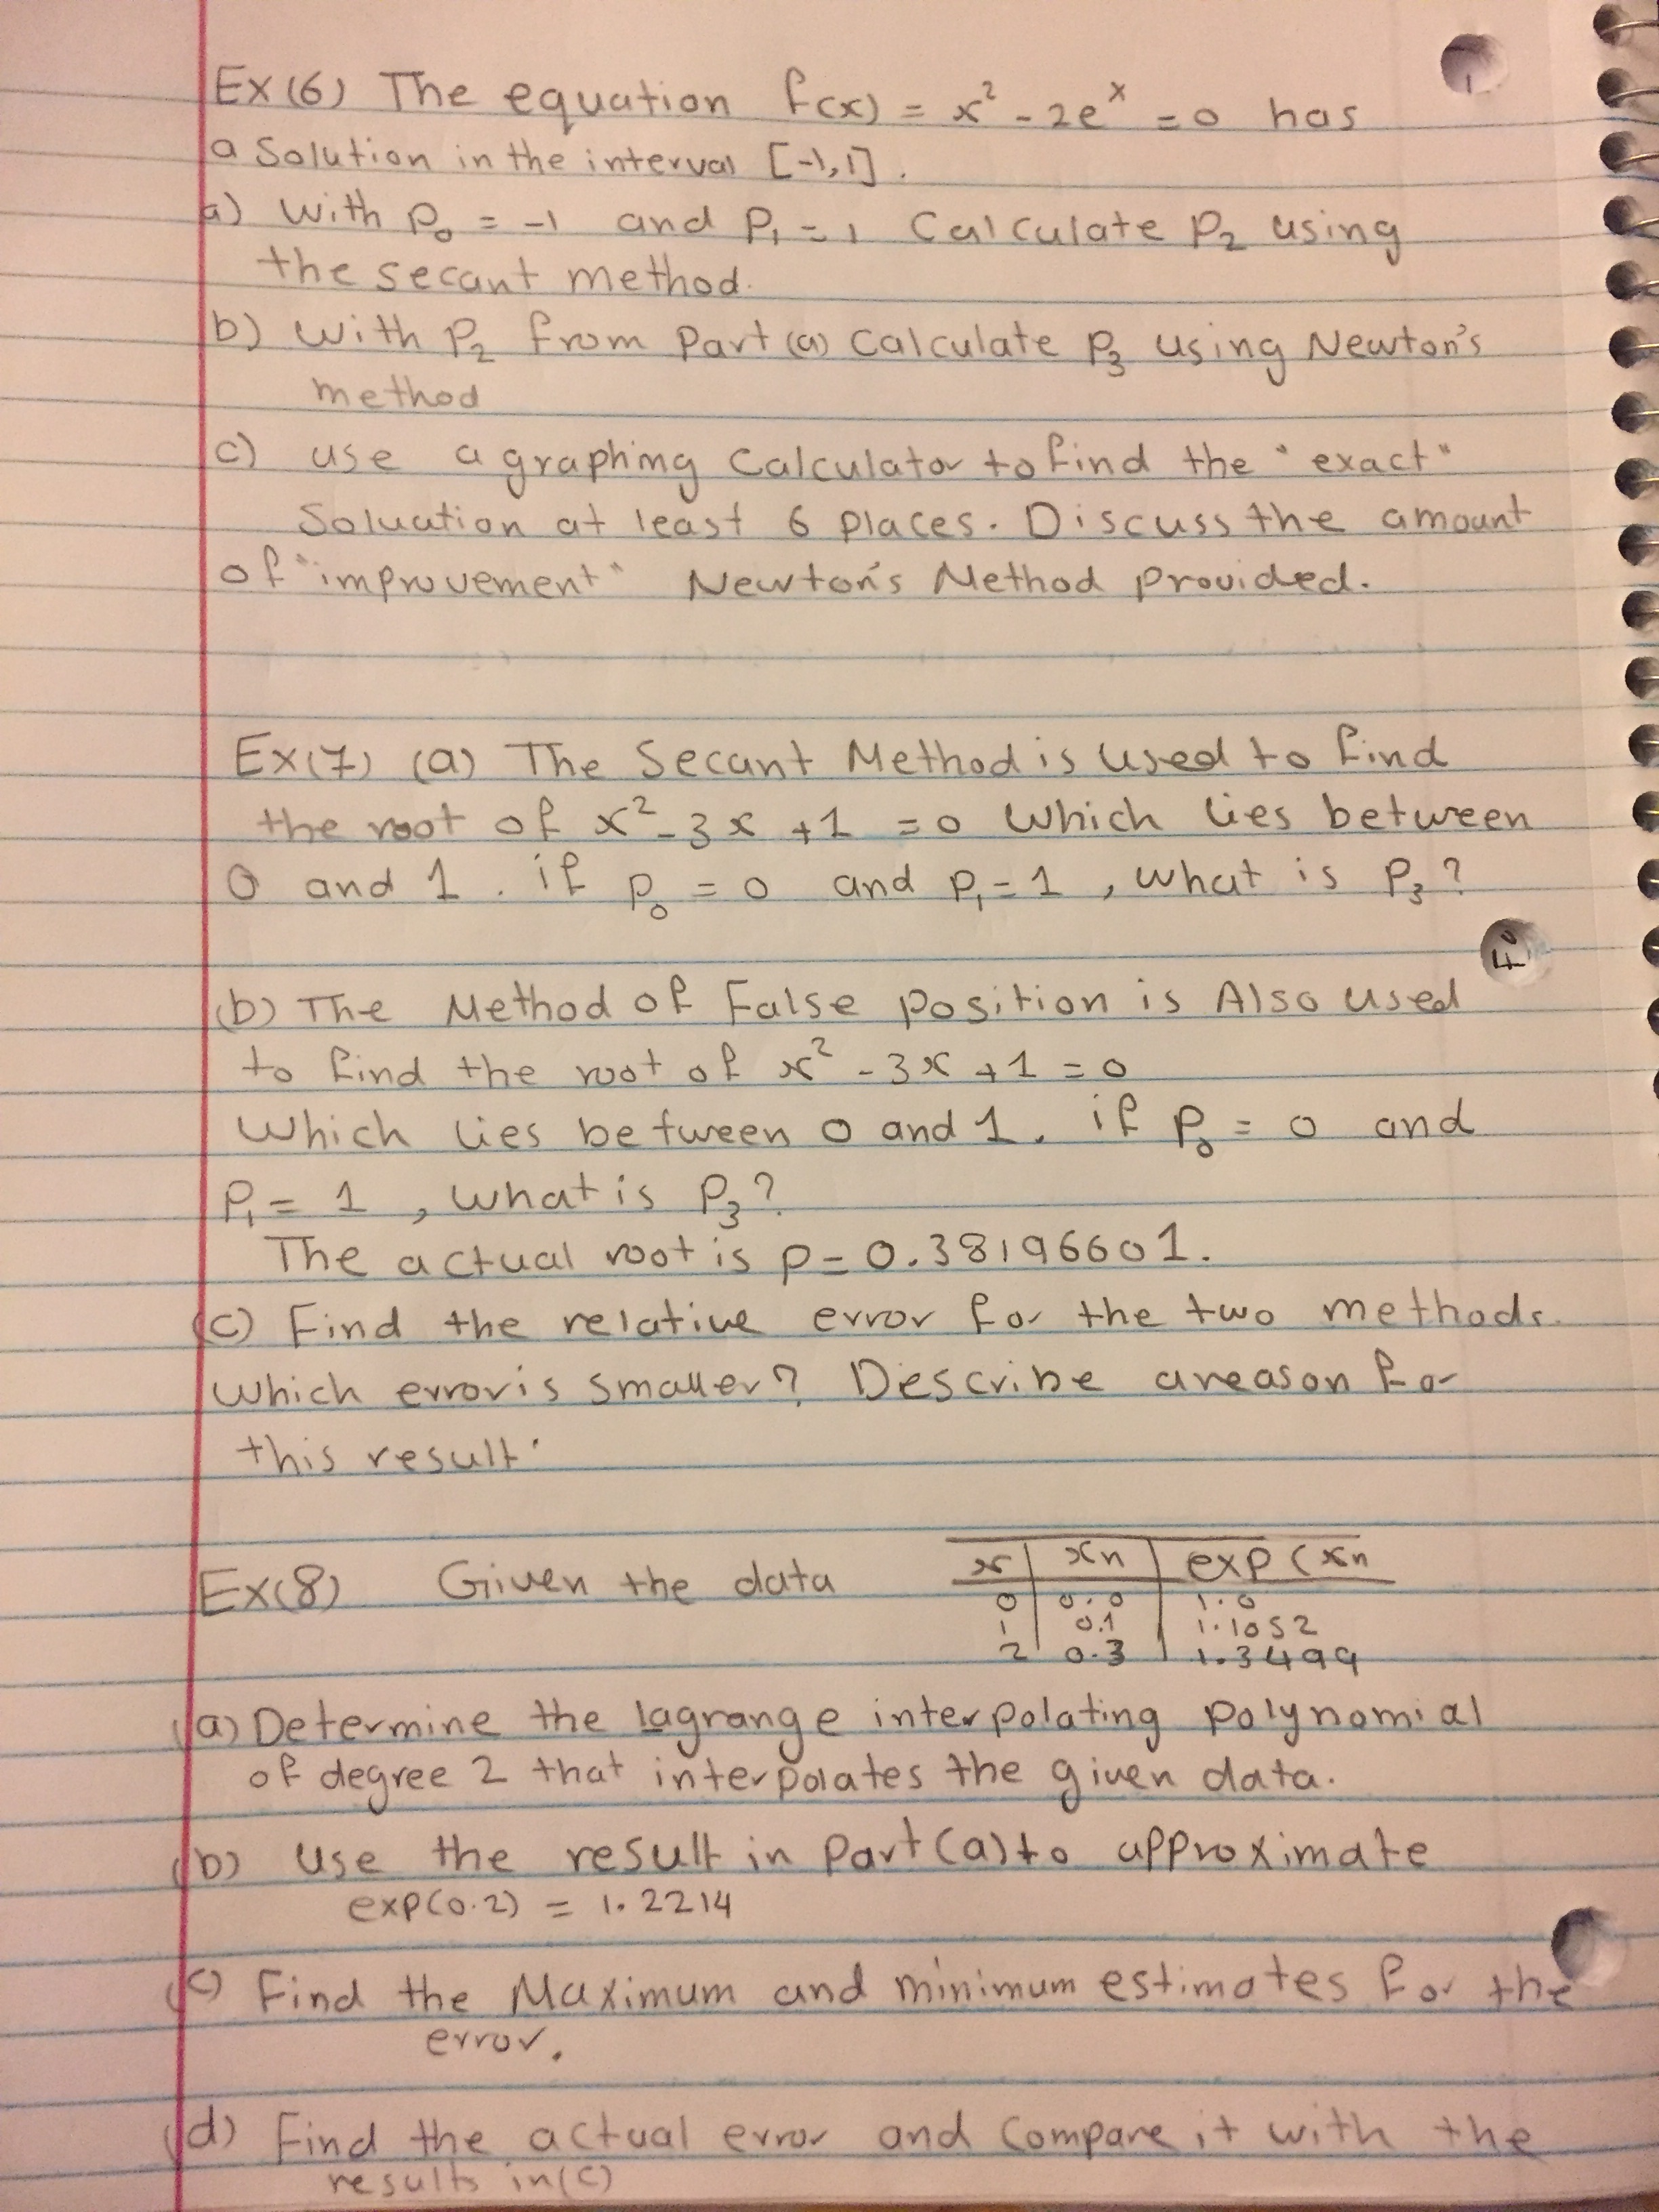 Ex(6) The equation f(x) = x² - 2eˣ = 0 has
a Solution in the interval [-1,1].
a) with P₀ = -1 and P₁ = 1 Calculate P₂ using
the secant method.
b) with P₂ from Part (a) Calculate P₃ using Newton's
method
c) use a graphing Calculator to find the "exact"
Soluation at least 6 places. Discuss the amount
of "improvement" Newton's Method provided.
Ex(7) (a) The Secant Method is used to find
the root of x² - 3x + 1 = 0 which lies between
0 and 1. if P₀ = 0 and P₁ = 1, what is P₃?
(b) The Method of False position is Also used
to find the root of x² - 3x + 1 = 0
which lies between 0 and 1. if P₀ = 0 and
P₁ = 1, what is P₃?
The actual root is P = 0.38196601.
(c) Find the relative error for the two methods.
which error is smaller? Describe a reason for
this result.
Ex(8) Given the data
x | xn | exp(xn
0 | 0.0 | 1.0
1 | 0.1 | 1.1052
2 | 0.3 | 1.3499
(a) Determine the lagrange interpolating polynomial
of degree 2 that interpolates the given data.
(b) Use the result in part (a) to approximate
exp(0.2) = 1.2214
(c) Find the Maximum and minimum estimates for the
error.
(d) Find the actual error and Compare it with the
results in (c)